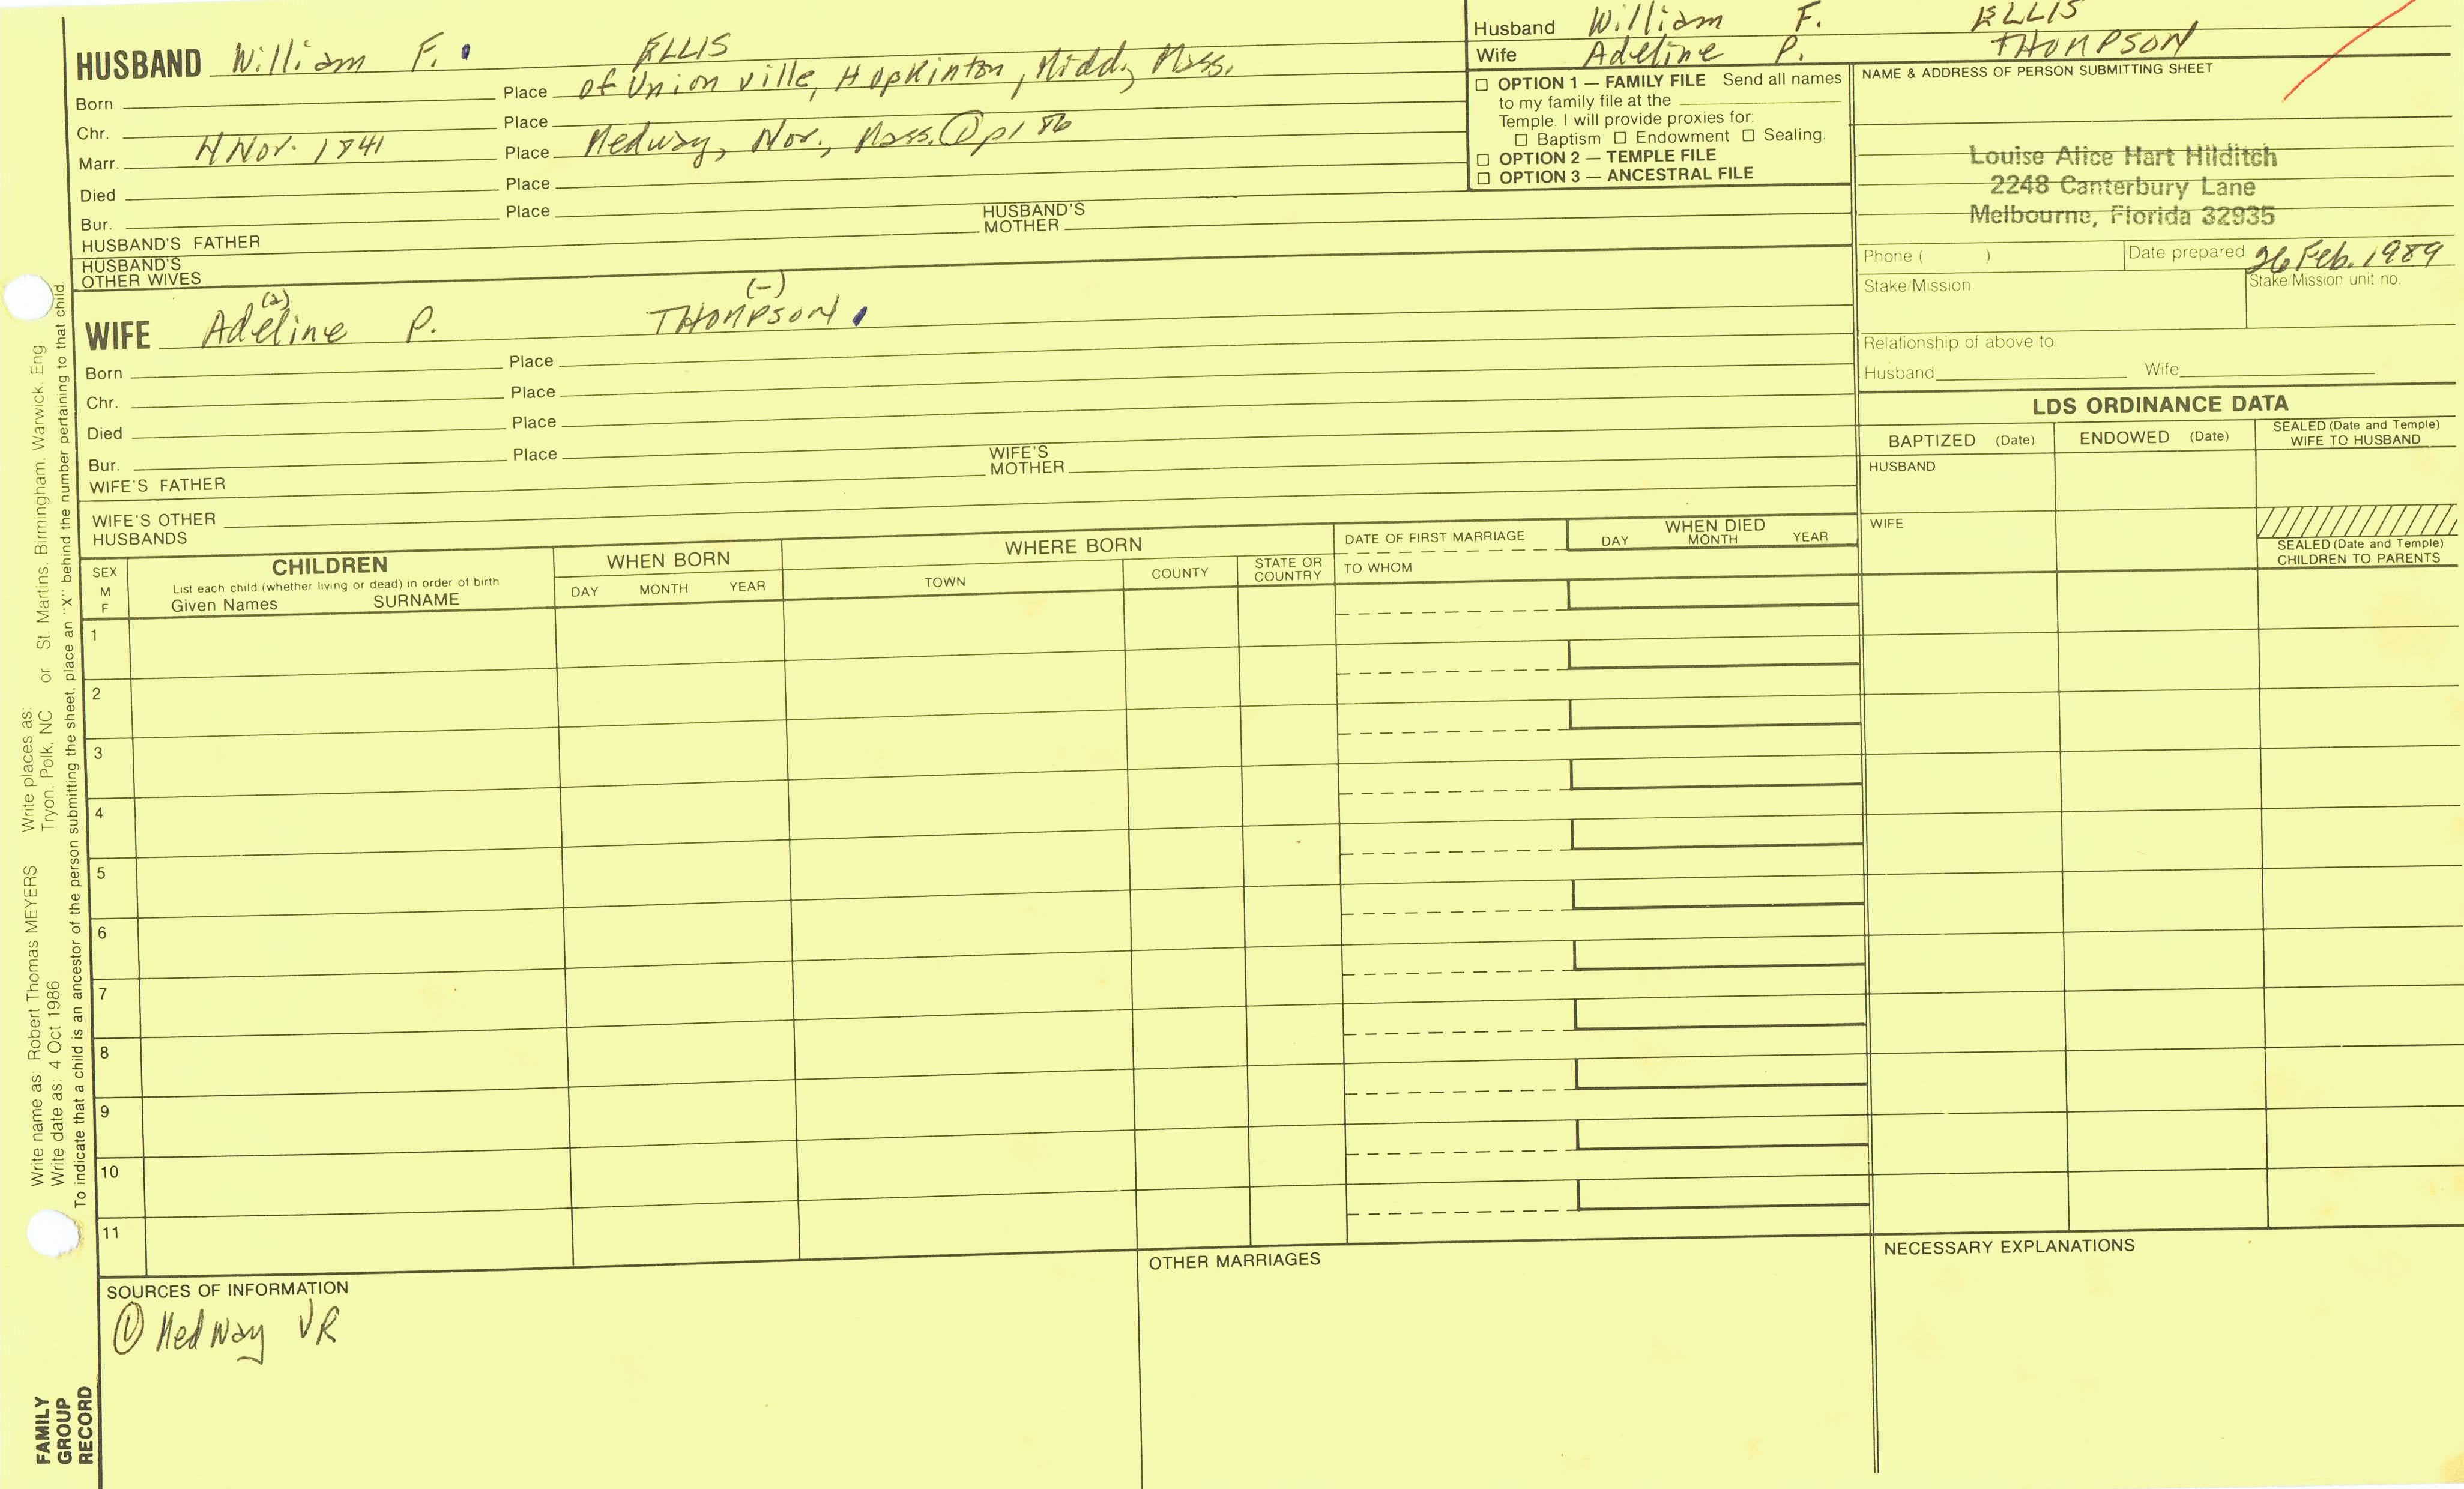 Husband William F. ELLIS
Wife Adeline P. THOMPSON
HUSBAND William F. ELLIS
Born Place of Union ville, Hopkinton, Midd, Mass.
Chr. Place
Marr. 4 Nov. 1841 Place Medway, Nor., Mass. ① p186
Died Place
Bur. Place
HUSBAND'S FATHER HUSBAND'S MOTHER
HUSBAND'S OTHER WIVES
(2) (-)
WIFE Adeline P. THOMPSON.
Born Place
Chr. Place
Died Place
Bur. Place
WIFE'S FATHER WIFE'S MOTHER
WIFE'S OTHER HUSBANDS
☐ OPTION 1 — FAMILY FILE Send all names
to my family file at the
Temple. I will provide proxies for:
☐ Baptism ☐ Endowment ☐ Sealing.
☐ OPTION 2 — TEMPLE FILE
☐ OPTION 3 — ANCESTRAL FILE
NAME & ADDRESS OF PERSON SUBMITTING SHEET
Louise Alice Hart Hilditch
2248 Canterbury Lane
Melbourne, Florida 32935
Phone ( ) Date prepared 26 Feb. 1989
Stake/Mission Stake/Mission unit no.
Relationship of above to
Husband Wife
LDS ORDINANCE DATA
BAPTIZED (Date) ENDOWED (Date) SEALED (Date and Temple) WIFE TO HUSBAND
HUSBAND
WIFE
SEALED (Date and Temple)
CHILDREN TO PARENTS
SEX M F
CHILDREN
List each child (whether living or dead) in order of birth
Given Names SURNAME
WHEN BORN
DAY MONTH YEAR
WHERE BORN
TOWN COUNTY STATE OR COUNTRY
DATE OF FIRST MARRIAGE
TO WHOM
WHEN DIED
DAY MONTH YEAR
1
2
3
4
5
6
7
8
9
10
11
SOURCES OF INFORMATION
① Medway VR
OTHER MARRIAGES
NECESSARY EXPLANATIONS
Write name as: Robert Thomas MEYERS Write places as: or St. Martins, Birmingham, Warwick, Eng
Write date as: 4 Oct 1986 Tryon, Polk, NC
To indicate that a child is an ancestor of the person submitting the sheet, place an "X" behind the number pertaining to that child
FAMILY
GROUP
RECORD